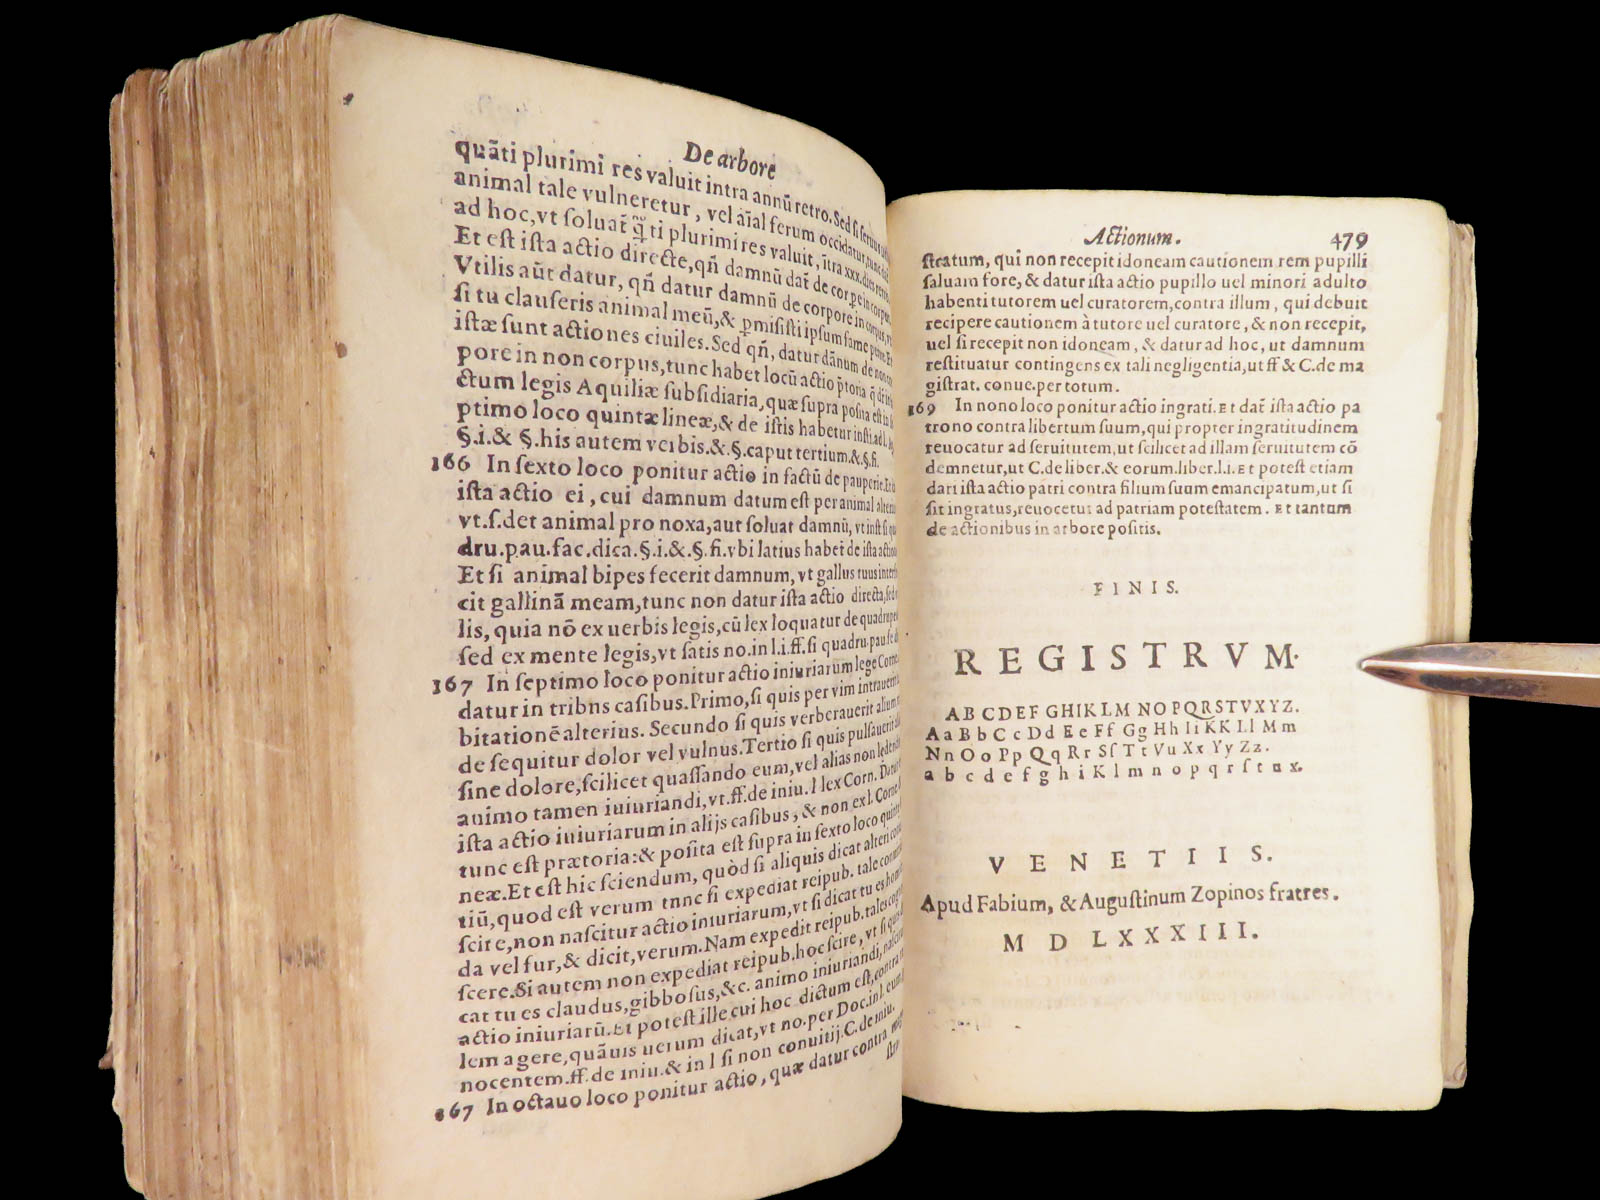 De arbore
quāti plurimi res valuit intra annū retro. Sed si seruus
animal tale vulneretur, vel aīal ferum occidatur,
ad hoc, vt soluat̄ ti plurimi res valuit, ītra xxx. dies
Et est ista actio directe, qñ damnū dat̄ de corpe in corpus,
Vtilis aūt datur, qñ datur damnū de corpore in corpus,
si tu clauseris animal meū, & pmisisti ipsum fame
istæ sunt actiones ciuiles. Sed qñ, datur dānum de non
pore in non corpus, tunc habet locū actio
ctum legis Aquiliæ subsidiaria, quæ supra posita est in
ptimo loco quintæ lineæ, & de istis habetur insti. ad l.
§. i. & §. his autem verbis. & §. caput tertium. & §. fi.
166 In sexto loco ponitur actio in factū de pauperie. Et
ista actio ei, cui damnum datum est per animal
vt. s. det animal pro noxa, aut soluat damnū, vt inst si
dru. pau. fac. dica. §. i. & §. fi. vbi latius habet̄ de ista
Et si animal bipes fecerit damnum, vt gallus tuus
cit gallinā meam, tunc non datur ista actio directa, sed
lis, quia nō ex uerbis legis, cū lex loquatur de
sed ex mente legis, vt satis no. in l. i. ff. si quadru. pau.
167 In septimo loco ponitur actio iniuriarum lege
datur in tribns casibus. Primo, si quis per vim
bitationē alterius. Secundo si quis verberauerit
de sequitur dolor vel vulnus. Tertio si quis pulsauerit
sine dolore, scilicet quassando eum, vel alias non
animo tamen iniuriandi, vt. ff. de iniu. l lex Corn.
ista actio iniuriarum in alijs casibus, & non ex l.
tunc est prætoria: & posita est supra in sexto loco
neæ. Et est hic sciendum, quòd si aliquis dicat alteri
tiū, quod est verum tnnc si expediat reipub. tale
scire, non nascitur actio iniuriarum, vt si dicat tu es
da vel fur, & dicit, verum. Nam expedit reipub. tales
scere. Si autem non expediat reipub. hoc scire, vt si
cat tu es claudus, gibbosus, &c. animo iniuriandi,
actio iniuriarū. Et potest ille cui hoc dictum est, contra
lem agere, quāuis uerum dicat, vt no. per Doc. in l. eum
nocentem. ff. de iniu. & in l si non conuitij. C. de iniu.
167 In octauo loco ponitur actio, quæ datur contra
stra
Actionum. 479
stratum, qui non recepit idoneam cautionem rem pupilli
saluam fore, & datur ista actio pupillo uel minori adulto
habenti tutorem uel curatorem, contra illum, qui debuit
recipere cautionem à tutore uel curatore, & non recepit,
uel si recepit non idoneam, & datur ad hoc, ut damnum
restituatur contingens ex tali negligentia, ut ff & C. de ma
gistrat. conue. per totum.
169 In nono loco ponitur actio ingrati. Et dat̄ ista actio pa
trono contra libertum suum, qui propter ingratitudinem
reuocatur ad seruitutem, ut scilicet ad illam seruitutem cō
demnetur, ut C. de liber. & eorum. liber. l. i. Et potest etiam
dari ista actio patri contra filium suum emancipatum, ut si
sit ingratus, reuocetur ad patriam potestatem. Et tantum
de actionibus in arbore positis.
FINIS.
REGISTRVM.
A B C D E F G H I K L M N O P Q R S T V X Y Z.
Aa Bb Cc Dd Ee Ff Gg Hh Ii KK Ll Mm
Nn Oo Pp Qq Rr Sſ Tt Vu Xx Yy Zz.
a b c d e f g h i K l m n o p q r s t u x.
VENETIIS.
Apud Fabium, & Augustinum Zopinos fratres.
M D LXXXIII.